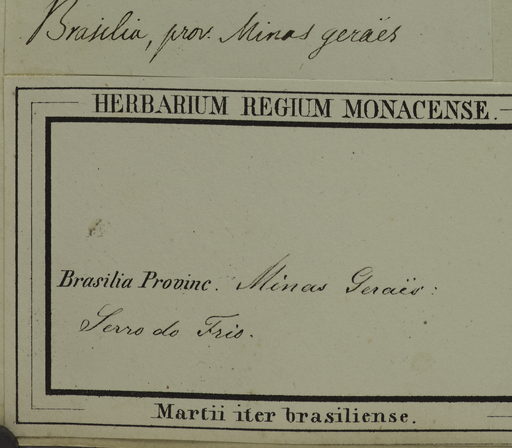 Brasilia, prov. Minas geraës
HERBARIUM REGIUM MONACENSE.
Brasilia Provinc. Minas Geraës:
Serro do Frio.
Martii iter brasiliense.